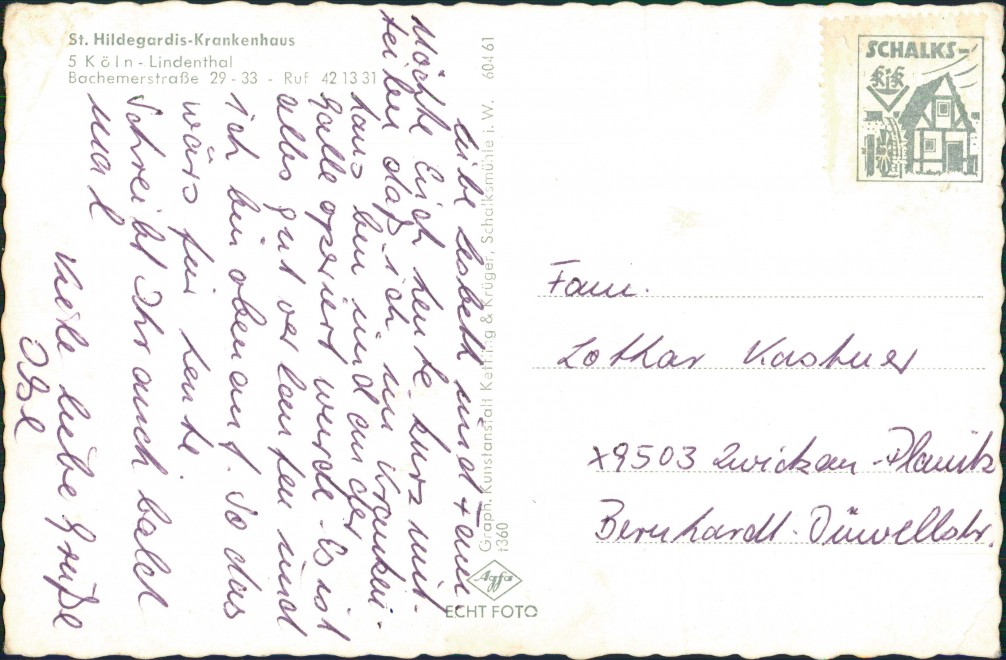 St. Hildegardis-Krankenhaus
5 Köln - Lindenthal
Bachemerstraße 29 - 33 - Ruf 42 13 31
Liebe Lisbeth und Fam.
Möchte Euch heute kurz mit-
teilen daß ich im Kranken-
haus bin und an der
Galle operiert wurde. Es ist
alles gut verlaufen und
ich bin oben auf. So das
wärs für heute.
Schreibt Ihr auch bald
mal
Viele liebe Grüße
Ilse
Graph. Kunstanstalt Kettling & Krüger, Schalksmühle i. W. 604 61
t360
Agfa
ECHT FOTO
SCHALKS-
KJK
Fam.
Lothar Kastner
X9503 Zwickau-Planitz
Bernhardt-Düwellstr.